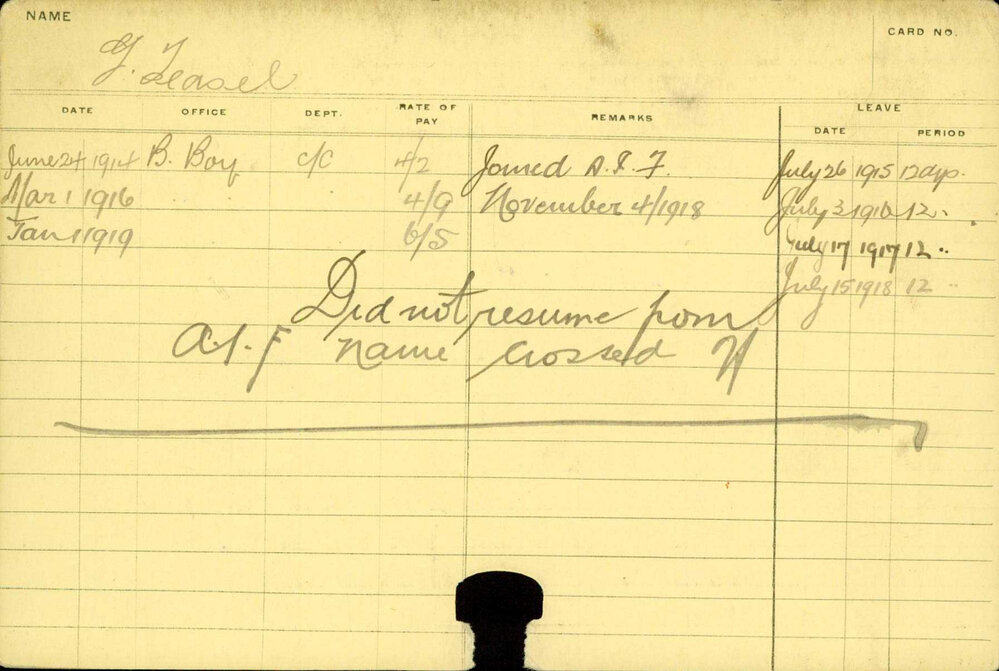 NAME
CARD NO.
G. Teasel
DATE OFFICE DEPT. RATE OF PAY REMARKS LEAVE
DATE PERIOD
June 24 1914 B. Boy c/c 4/2 Joined A.I.F. July 26 1915 12 days.
Mar 1 1916 4/9 November 4/1918 July 3 1916 12 ..
Jan 1 1919 6/5 July 17 1917 12 ..
July 15 1918 12 ..
Did not resume from
A.I.F name crossed